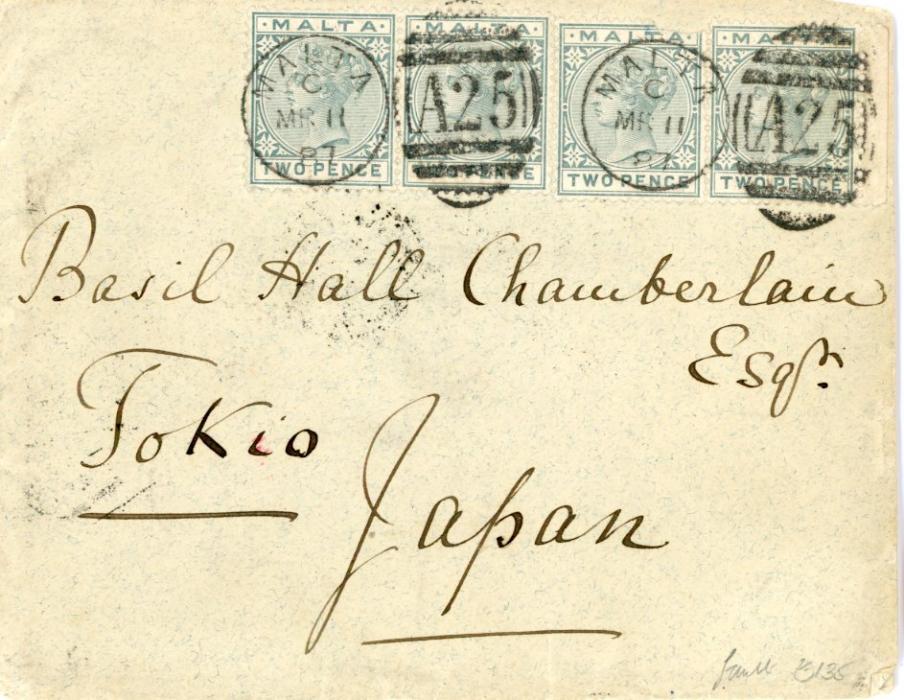 MALTA MALTA MALTA MALTA
MALTA C MR 11 87
A25
MALTA C MR 11 87
A25
TWO PENCE TWO PENCE TWO PENCE TWO PENCE
Basil Hall Chamberlain
Esqr.
Tokio
Japan